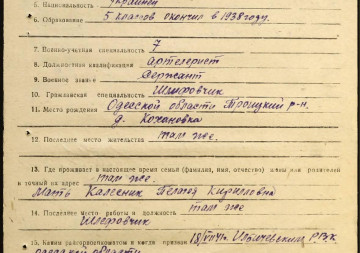 6. Национальность украинец
6. Образование 5 классов окончил в 1938 году.
7. Военно-учетная специальность 7
8. Должностная квалификация артелерист
9. Военное звание Сержант
10. Гражданская специальность
11. Место рождения Одесской области Троицкий р-н.
д. Кохановка
12. Последнее место жительства там же.
13. Где проживает в настоящее время семья (фамилия, имя, отчество) жены или родителей
и точный их адрес там же.
Мать Калесник Пелагея Кирилловна
14. Последнее место работы и должность там же
15. Каким райгорвоенкоматом и когда призван 18/VII 41г. РВК
одесской области